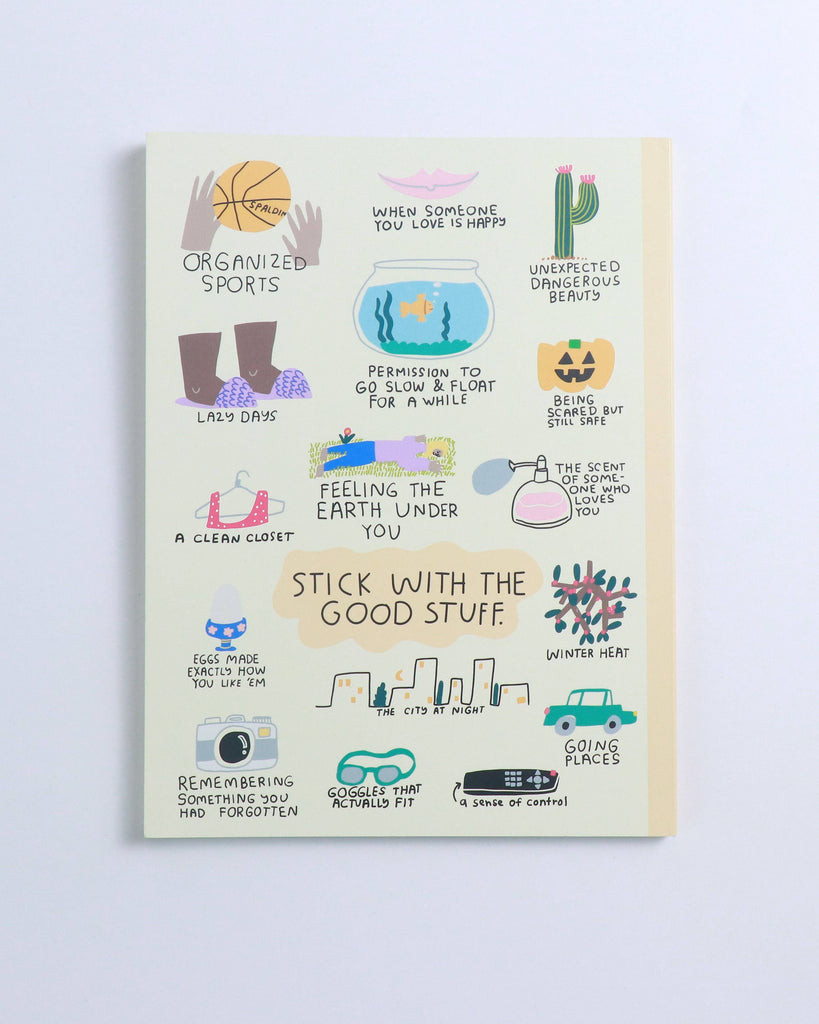 SPALDIN
ORGANIZED
SPORTS
WHEN SOMEONE
YOU LOVE IS HAPPY
UNEXPECTED
DANGEROUS
BEAUTY
PERMISSION TO
GO SLOW & FLOAT
FOR A WHILE
LAZY DAYS
BEING
SCARED BUT
STILL SAFE
FEELING THE
EARTH UNDER
YOU
THE SCENT
OF SOME-
ONE WHO
LOVES
YOU
A CLEAN CLOSET
STICK WITH THE
GOOD STUFF.
EGGS MADE
EXACTLY HOW
YOU LIKE 'EM
WINTER HEAT
THE CITY AT NIGHT
GOING
PLACES
REMEMBERING
SOMETHING YOU
HAD FORGOTTEN
GOGGLES THAT
ACTUALLY FIT
a sense of control